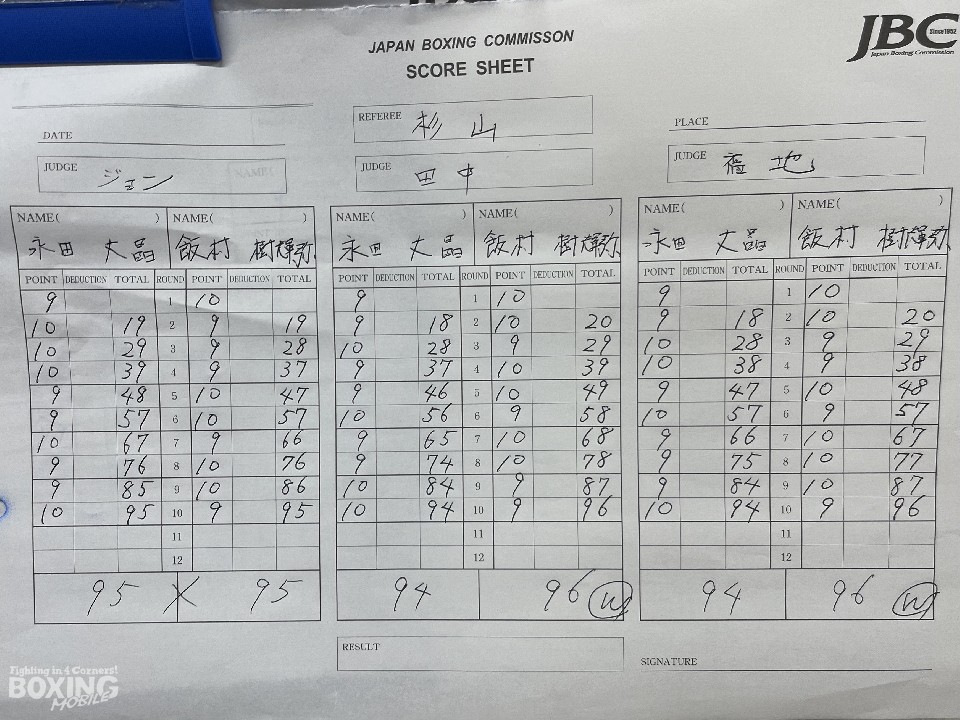 JAPAN BOXING COMMISSON
SCORE SHEET
JBC Since1952
Japan Boxing Commission
DATE
REFEREE 杉 山
PLACE
JUDGE ジェン
JUDGE 田 中
JUDGE 斎 地
NAME( ) NAME( ) NAME( ) NAME( ) NAME( ) NAME( )
永田 丈晶 飯村 樹輝弥 永田 丈晶 飯村 樹輝弥 永田 丈晶 飯村 樹輝弥
POINT DEDUCTION TOTAL ROUND POINT DEDUCTION TOTAL POINT DEDUCTION TOTAL ROUND POINT DEDUCTION TOTAL POINT DEDUCTION TOTAL ROUND POINT DEDUCTION TOTAL
9 1 10 9 1 10 9 1 10
10 19 2 9 19 9 18 2 10 20 9 18 2 10 20
10 29 3 9 28 10 28 3 9 29 10 28 3 9 29
10 39 4 9 37 9 37 4 10 39 10 38 4 9 38
9 48 5 10 47 9 46 5 10 49 9 47 5 10 48
9 57 6 10 57 10 56 6 9 58 10 57 6 9 57
10 67 7 9 66 9 65 7 10 68 9 66 7 10 67
9 76 8 10 76 9 74 8 10 78 9 75 8 10 77
9 85 9 10 86 10 84 9 9 87 9 84 9 10 87
10 95 10 9 95 10 94 10 9 96 10 94 10 9 96
11 11 11
12 12 12
95 X 95 94 96 W 94 96 W
RESULT
SIGNATURE
Fighting in 4 Corners!
BOXING
MOBILE